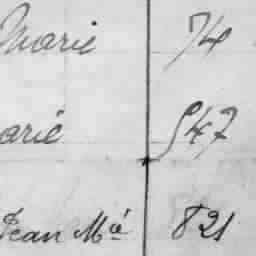 Marie 74
arie 547
Jean Mé 821